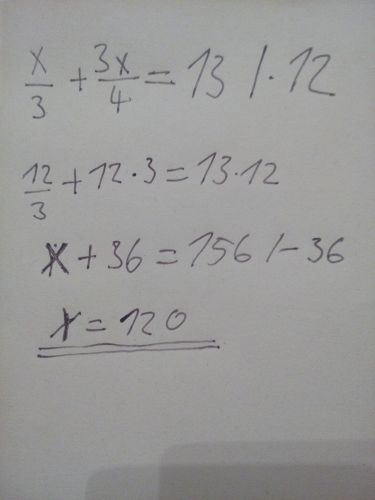 x/3 + 3x/4 = 13 /·12
12/3 + 12·3 = 13·12
x + 36 = 156 /-36
x = 120